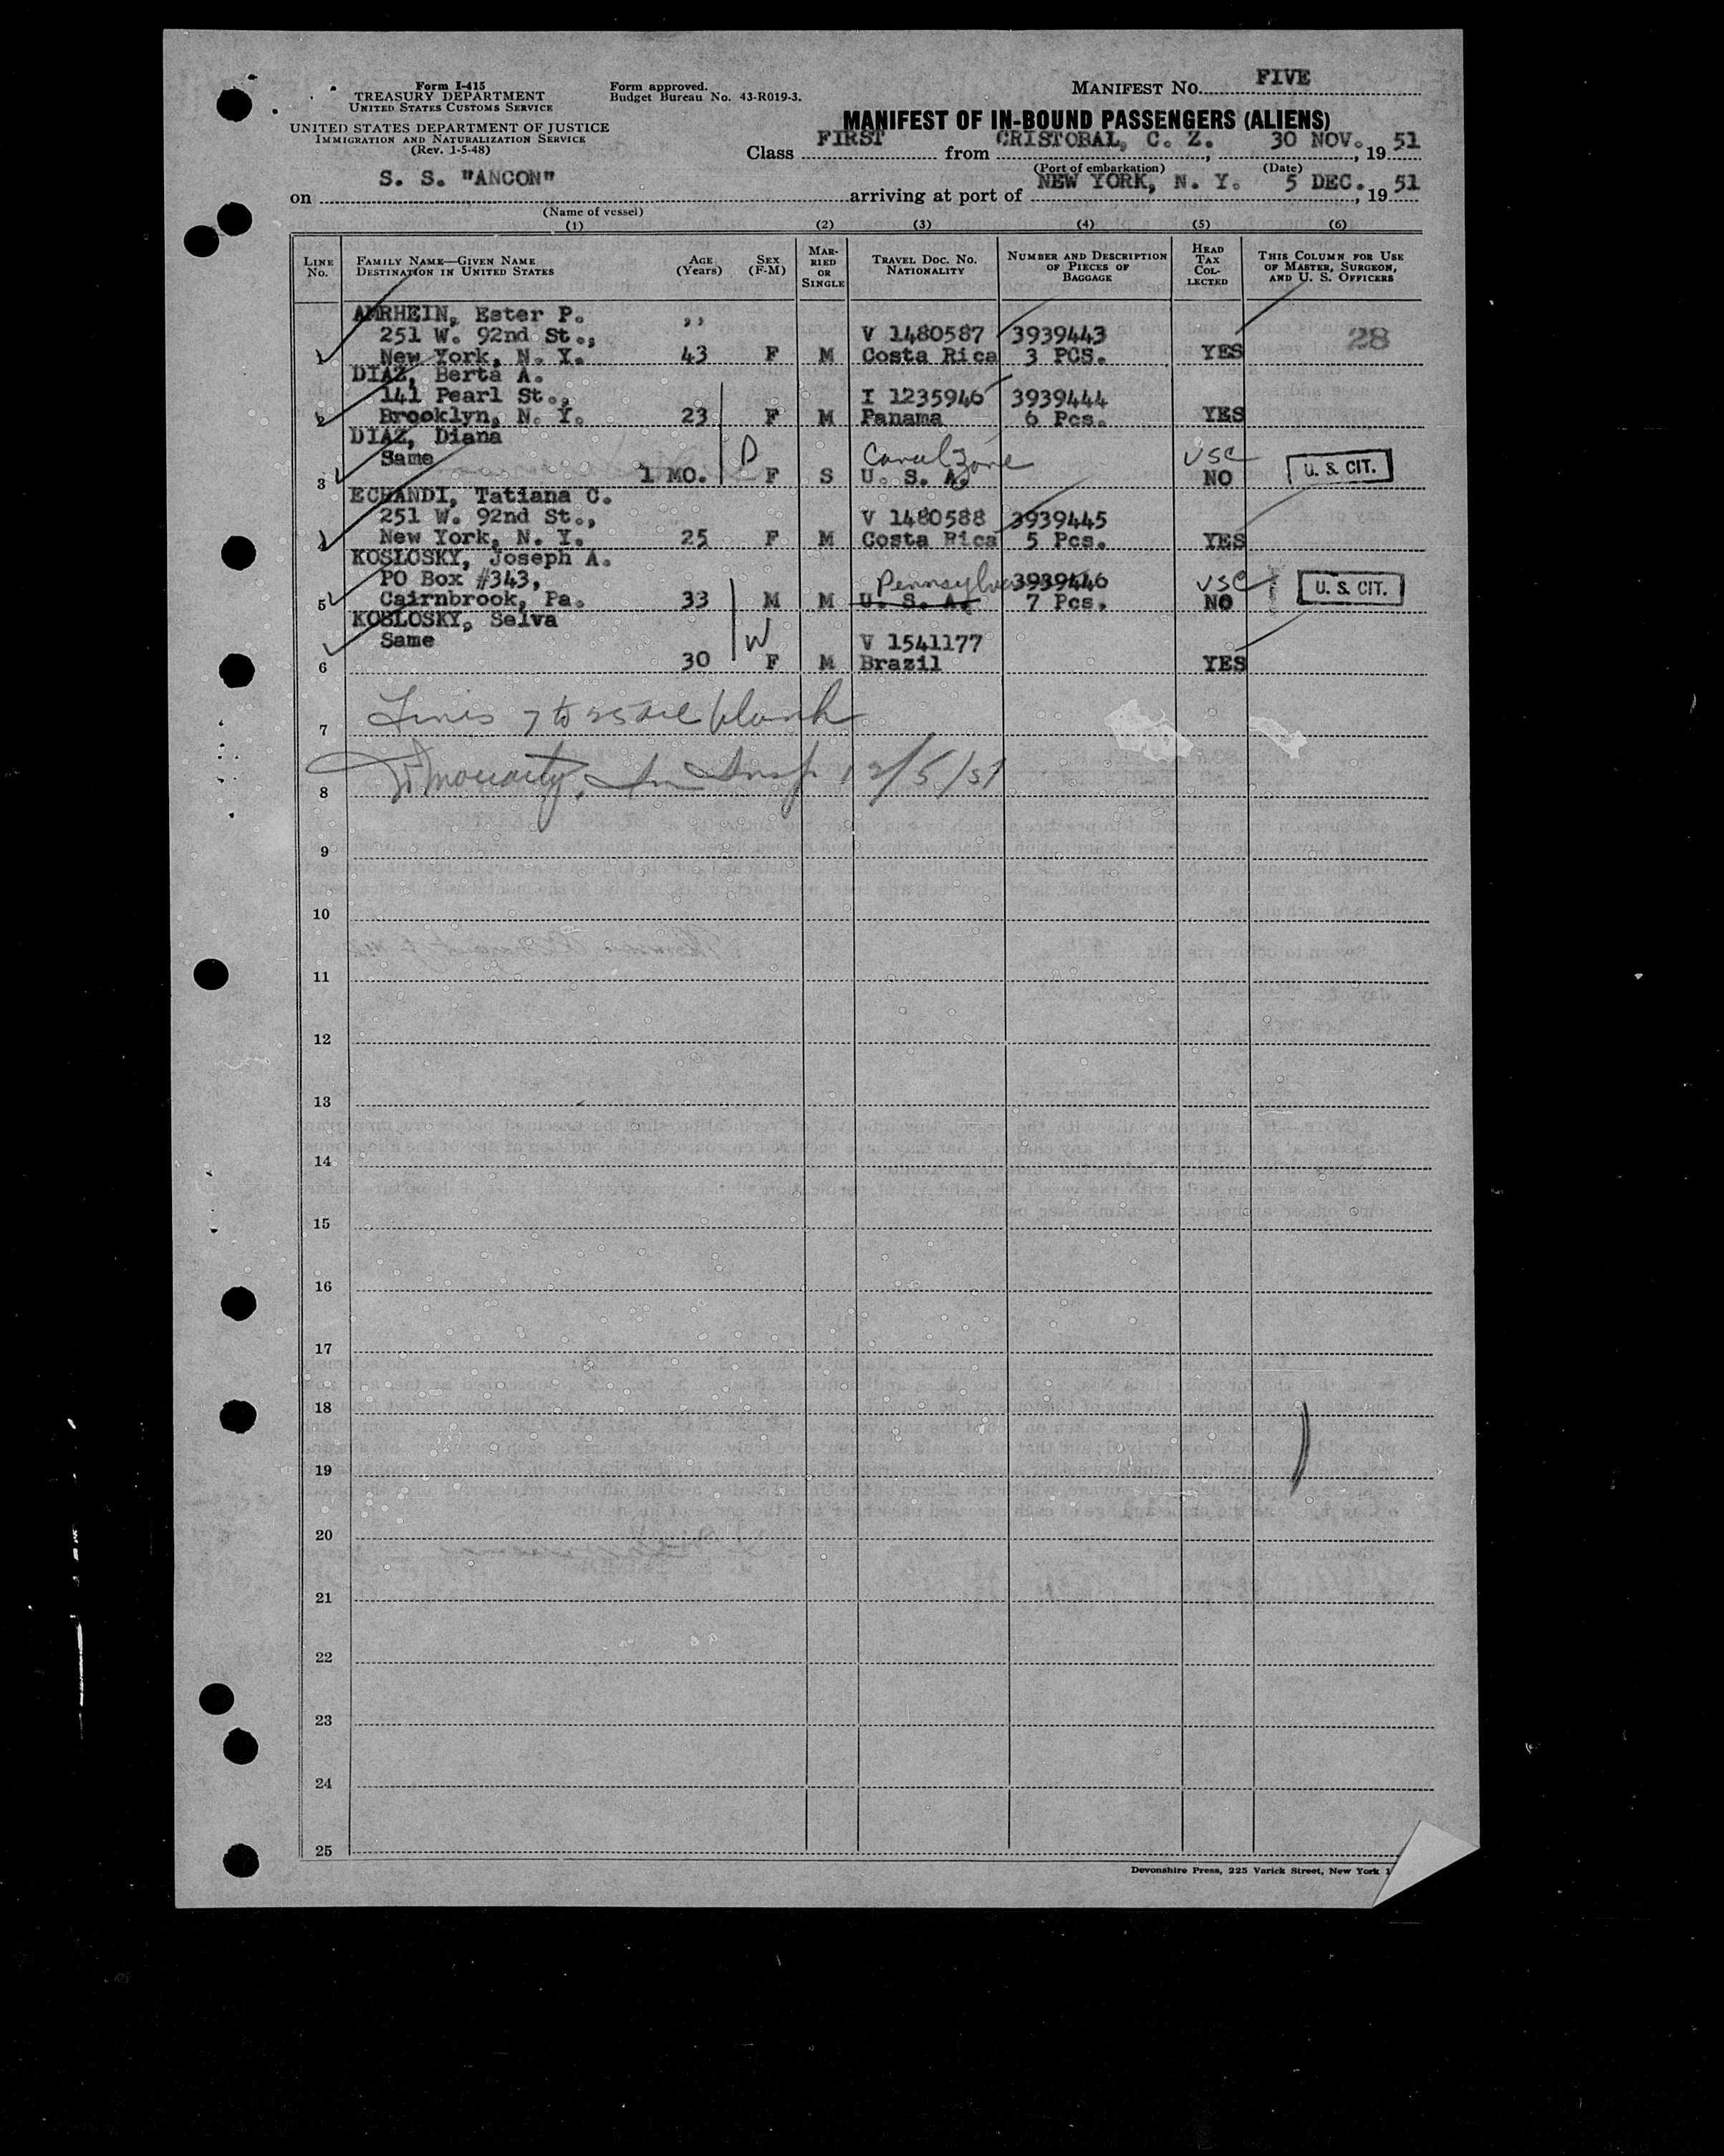 Form I-415
TREASURY DEPARTMENT
UNITED STATES CUSTOMS SERVICE
UNITED STATES DEPARTMENT OF JUSTICE
IMMIGRATION AND NATURALIZATION SERVICE
(Rev. 1-5-48)
Form approved.
Budget Bureau No. 43-R019-3.
MANIFEST No. FIVE
MANIFEST OF IN-BOUND PASSENGERS (ALIENS)
Class FIRST from CRISTOBAL, C. Z., 30 NOV., 19 51
(Port of embarkation) (Date)
on S. S. "ANCON" arriving at port of NEW YORK, N. Y. 5 DEC., 19 51
(Name of vessel)
(1) (2) (3) (4) (5) (6)
LINE No. FAMILY NAME—GIVEN NAME DESTINATION IN UNITED STATES AGE (Years) SEX (F-M) MARRIED OR SINGLE TRAVEL DOC. NO. NATIONALITY NUMBER AND DESCRIPTION OF PIECES OF BAGGAGE HEAD TAX COLLECTED THIS COLUMN FOR USE OF MASTER, SURGEON, AND U. S. OFFICERS
AMRHEIN, Ester P. ,,
251 W. 92nd St., V 1480587 3939443 28
1 New York, N. Y. 43 F M Costa Rica 3 PCS. YES
DIAZ, Berta A.
141 Pearl St., I 1235946 3939444
2 Brooklyn, N. Y. 23 F M Panama 6 Pcs. YES
DIAZ, Diana
Same D Canal Zone USC U. S. CIT.
3 1 MO. F S U. S. A. NO
ECHANDI, Tatiana C.
251 W. 92nd St., V 1480588 3939445
4 New York, N. Y. 25 F M Costa Rica 5 Pcs. YES
KOSLOSKY, Joseph A.
PO Box #343, Pennsylvania 3939446 USC U. S. CIT.
5 Cairnbrook, Pa. 33 M M U. S. A. 7 Pcs. NO
KOSLOSKY, Selva
Same W V 1541177
6 30 F M Brazil YES
Lines 7 to 25 are blank
7
Moriarty, Im Insp 12/5/51
8
9
10
11
12
13
14
15
16
17
18
19
20
21
22
23
24
25
Devonshire Press, 225 Varick Street, New York 1